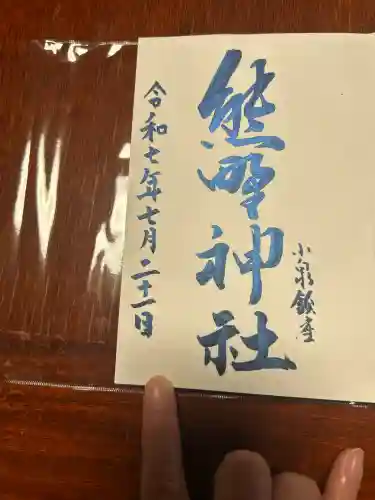 小泉鎮座
熊野神社
令和七年七月二十一日